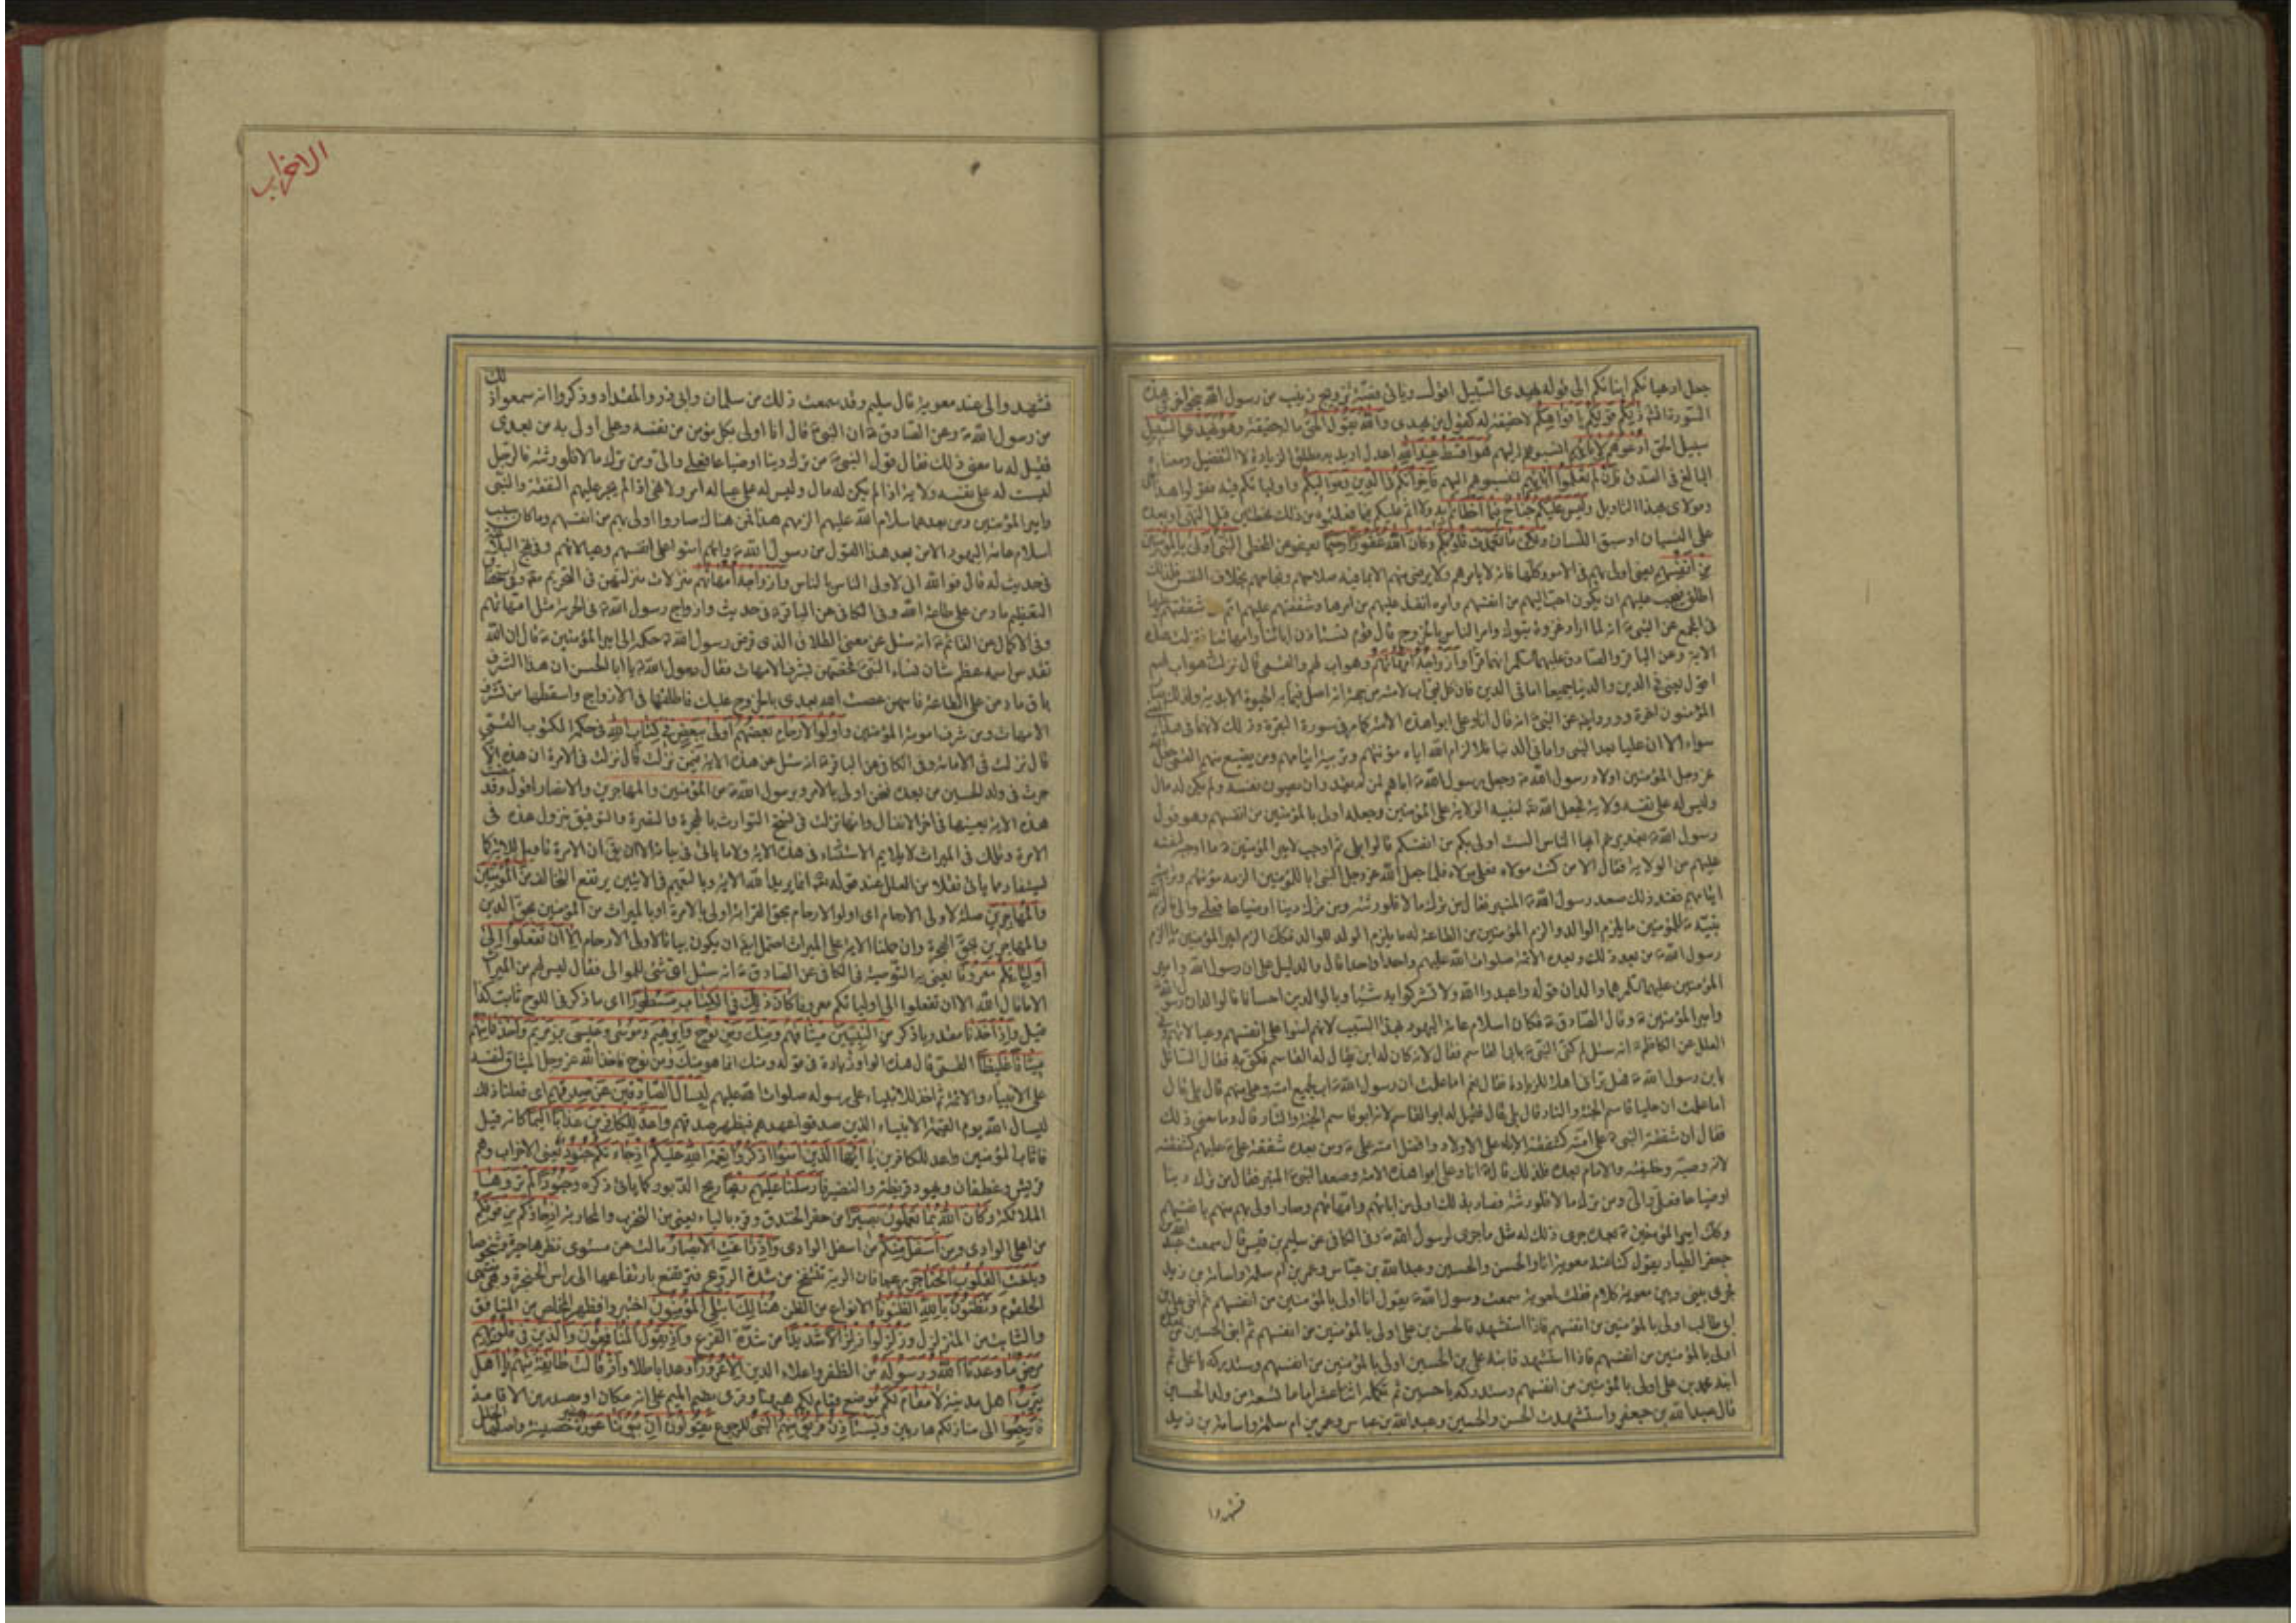 جعل ادعيائكم ابنائكم الى قوله يهدى السبيل اقول وياتى قصة تزويج زينب من رسول الله
السورة انشاء ذلكم قولكم بافواهكم لا حقيقة له كقول من يهذى والله يقول الحق ما له حقيقة وهو يهدي السبيل
سبيل الحق ادعوهم لابائهم انسبوهم اليهم هو اقسط عند الله اعدل اريد به مطلق الزيادة لا التفضيل ومعناه
البالغ فى الصدق فان لم تعلموا آبائهم لتنسبوهم اليهم فاخوانكم في الدين ومواليكم واوليائكم فيه فقولوا هذا
ومولاى بهذا التاويل وليس عليكم جناح فيما اخطاتم به ولا اثم عليكم فيما فعلتموه من ذلك مخطئين قبل النهى او بعده
على النسيان او سبق اللسان ولكن ما تعمدت قلوبكم وكان الله غفورا رحيما لعفوه عن المخطى النبي اولى بالمؤمنين
من انفسهم يعنى اولى بهم فى الامور كلها فانه لا يامرهم ولا يرضى منهم الا بما فيه صلاحهم ونجاحهم بخلاف النفس فلذلك
اطلق فيجب عليهم ان يكون احب اليهم من انفسهم وامره انفذ عليهم من امرها وشفقتهم عليه اتم من شفقتهم عليها
فى المجمع عن النبى ص انه لما اراد غزوة تبوك وامر الناس بالخروج قال قوم نستاذن ابائنا وامهاتنا فنزلت هذه
الاية وعن الباقر والصادق عليهما السلم انهما قرا وازواجه امهاتهم وهو اب لهم والقمى قال نزلت وهو اب لهم
اقول يعنى فى الدين والدنيا جميعا اما فى الدين فان كل نبى اب لامته من جهة انه اصل فيما به الحيوة الابدية ولذلك صار
المؤمنون اخوة وورد ايضا عن النبى ص انه قال انا وعلى ابوا هذه الامة كما مر فى سورة البقرة وذلك لانهما فى هذا المعنى
سواء الا ان عليا بعد النبى واما فى الدنيا فلالزام الله اياه مؤنتهم وتربية ايتامهم ومن يضيع منهم القمى جعل الله
عز وجل المؤمنين اولاد رسول الله ص وجعل رسول الله ص اباهم لمن لم يقدر ان يصون نفسه ولم يكن له مال
وليس له على نفسه ولاية فجعل الله لنبيه الولاية على المؤمنين وجعله اولى بالمؤمنين من انفسهم وهو قول
رسول الله ص بغدير خم ايها الناس الست اولى بكم من انفسكم قالوا بلى ثم اوجب لامير المؤمنين ع ما اوجبه لنفسه
عليهم من الولاية فقال الا من كنت مولاه فعلى مولاه فلما جعل الله عز وجل النبى ابا للمؤمنين الزمه مؤنتهم وتربية
ايتامهم فعند ذلك صعد رسول الله ص المنبر فقال من ترك مالا فلورثته ومن ترك دينا او ضياعا فعلى والى فالزم الله
نبيه للمؤمنين ما يلزم الوالد والزم المؤمنين من الطاعة له ما يلزم الولد للوالد فكذلك الزم امير المؤمنين ما الزم
رسول الله ص من بعد ذلك وبعده الائمة صلوات الله عليهم واحدا واحدا قال والدليل على ان رسول الله وامير
المؤمنين عليهما السلم هما والدان قوله واعبدوا الله ولا تشركوا به شيئا وبالوالدين احسانا فالوالدان رسول الله
وامير المؤمنين ع وقال الصادق ع فكان اسلام عامة اليهود بهذا السبب لانهم امنوا على انفسهم وعيالاتهم وفى
العلل عن الكاظم ع انه سئل لم كنى النبى ص بابى القاسم فقال لانه كان له ابن يقال له القاسم فكنى به فقال السائل
يابن رسول الله ص فهل ترانى اهلا للزيادة فقال نعم اما علمت ان رسول الله ص اب لجميع امته وعلى منهم قال بلى قال
اما علمت ان عليا قاسم الجنة والنار قال بلى قال فقيل له ابو القاسم لانه ابو قاسم الجنة والنار قال وما معنى ذلك
فقال ان شفقة النبى ص على امته كشفقة الاباء على الاولاد وافضل امته على ع ومن بعده شفقة على ع عليهم كشفقته
لانه وصيه وخليفته والامام بعده فلذلك قال انا وعلى ابوا هذه الامة وصعد النبى المنبر فقال من ترك دينا
او ضياعا فعلى والى ومن ترك مالا فلورثته فصار بذلك اولى من ابائهم وامهاتهم وصار اولى بهم منهم بانفسهم
وكذلك امير المؤمنين ع بعده جرى ذلك له مثل ما جرى لرسول الله ص وفى الكافى عن سليم بن قيس قال سمعت عبد الله بن
جعفر الطيار يقول كنا عند معوية انا والحسن والحسين وعبد الله بن عباس وعمر بن ام سلمة واسامة بن زيد
فجرى بينى وبين معوية كلام فقلت لمعوية سمعت رسول الله ص يقول انا اولى بالمؤمنين من انفسهم ثم اخى على بن
ابى طالب اولى بالمؤمنين من انفسهم فاذا استشهد فالحسن بن على اولى بالمؤمنين من انفسهم ثم ابنى الحسين من بعده
اولى بالمؤمنين من انفسهم فاذا استشهد فابنه على بن الحسين اولى بالمؤمنين من انفسهم وستدركه يا على ثم
ابنه محمد بن على اولى بالمؤمنين من انفسهم وستدركه يا حسين ثم تكملة اثنا عشر اماما تسعة من ولد الحسين
قال عبد الله بن جعفر واستشهدت الحسن والحسين وعبد الله بن عباس وعمر بن ام سلمة واسامة بن زيد
فشهدوا
الاحزاب
فشهدوا لى عند معوية قال سليم وقد سمعت ذلك من سلمان وابى ذر والمقداد وذكروا انه سمعوا ذلك
من رسول الله ص وعن الصادق ع ان النبى ص قال انا اولى بكل مؤمن من نفسه وعلى اولى به من بعدى
فقيل له ما معنى ذلك فقال قول النبى ص من ترك دينا او ضياعا فعلى والى ومن ترك مالا فلورثته فالرجل
ليست له على نفسه ولاية اذا لم يكن له مال وليس له على عياله امر ولا نهى اذا لم يجر عليهم النفقة والنبى
وامير المؤمنين ومن بعدهما سلام الله عليهم الزمهم هذا فمن هناك صاروا اولى بهم من انفسهم وما كان سبب
اسلام عامة اليهود الا من بعد هذا القول من رسول الله ص وانهم امنوا على انفسهم وعيالاتهم وفى نهج البلاغة
فى حديث له قال فوالله انى لاولى الناس بالناس وازواجه امهاتهم منزلات منزلتهن فى التحريم وفى استحقاق
التعظيم ما دمن على طاعة الله وفى الكافى عن الباقر ع فى حديث وازواج رسول الله ص فى الحرمة مثل امهاتهم
وفى الاكمال عن القائم ع انه سئل عن معنى الطلاق الذى فوض رسول الله ص حكمه الى امير المؤمنين ع قال ان الله
تقدس اسمه عظم شان نساء النبى ص فخصهن بشرف الامهات فقال رسول الله ص يا ابا الحسن ان هذا الشرف
باق ما دمن على الطاعة فايتهن عصت الله بعدى بالخروج عليك فاطلقها فى الازواج واسقطها من تشرف
الامهات ومن شرف امومة المؤمنين واولوا الارحام بعضهم اولى ببعض في كتاب الله فى حكمه المكتوب القمى
قال نزلت فى الامامة وفى الكافى عن الباقر ع انه سئل عن هذه الاية فيمن نزلت قال نزلت فى الامرة ان هذه الاية
جرت فى ولد الحسين من بعده فنحن اولى بالامر وبرسول الله ص من المؤمنين والمهاجرين والانصار اقول وقد مضت
هذه الاية بعينها فى اخر الانفال وانها نزلت فى نسخ التوارث بالهجرة والنصرة والتوفيق بنزول هذه فى
الامرة وتلك فى الميراث لا يلايم الاستثناء فى هذه الاية ولا ما ياتى فى بيانه الا ان يقال ان الامرة تاويل للاية كما
ليستفاد مما ياتى نقلا من العلل عند قوله تعالى انما يريد الله الاية وبالتعميم فى الايتين يرتفع التخالف من المؤمنين
والمهاجرين صلة لاولى الارحام اى اولوا الارحام بحق القرابة اولى بالامرة او بالميراث من المؤمنين بحق الدين
والمهاجرين بحق الهجرة وان حملنا الاية على الميراث احتمل ايضا ان يكون بيانا لاولى الارحام الا ان تفعلوا الى
اوليائكم معروفا يعنى به التوصية فى الكافى عن الصادق ع انه سئل اى شئ للموالى فقال ليس لهم من الميراث
الا ما قال الله الا ان تفعلوا الى اوليائكم معروفا كان ذلك في الكتاب مسطورا اى ما ذكر فى اللوح ثابت كذا
قيل واذ اخذنا مقدر باذكر من النبيين ميثاقهم ومنك ومن نوح وابراهيم وموسى وعيسى بن مريم واخذنا منهم
ميثاقا غليظا القمى قال هذه الواو زيادة فى قوله ومنك انما هو منك ومن نوح فاخذ الله عز وجل الميثاق لنفسه
على الانبياء والائمة ثم اخذ للانبياء على رسوله صلوات الله عليهم ليسأل الصادقين عن صدقهم اى فعلنا ذلك
ليسال الله يوم القيمة الانبياء الذين صدقوا عهدهم فيظهر صدقهم واعد للكافرين عذابا اليما كانه قيل
فاثاب المؤمنين واعد للكافرين يا ايها الذين آمنوا اذكروا نعمة الله عليكم اذ جاءتكم جنود يعنى الاحزاب وهم
قريش وغطفان ويهود قريظة والنضير فارسلنا عليهم ريحا ريح الدبور كما ياتى ذكره وجنودا لم تروها
الملائكة وكان الله بما تعملون بصيرا من حفر الخندق وقرء بالياء يعنى من التحزب والمحاربة اذ جاؤكم من فوقكم
من اعلى الوادى ومن اسفل منكم من اسفل الوادى واذ زاغت الابصار مالت عن مستوى نظرها حيرة وشخوصا
وبلغت القلوب الحناجر رعبا فان الرية تنتفخ من شدة الروع فترتفع بارتفاعها الى راس الحنجرة وهى منتهى
الحلقوم وتظنون بالله الظنونا الانواع من الظن هنالك ابتلي المؤمنون اختبروا فظهر المخلص من المنافق
والثابت من المتزلزل وزلزلوا زلزالا شديدا من شدة الفزع واذ يقول المنافقون والذين في قلوبهم
مرض ما وعدنا الله ورسوله من الظفر واعلاء الدين الا غرورا وعدا باطلا واذ قالت طائفة منهم يا اهل
يثرب اهل مدينة لا مقام لكم موضع قيام لكم هيهنا وقرى بضم الميم على انه مكان او مصدر من الاقامة
فارجعوا الى منازلكم هاربين ويستأذن فريق منهم النبي للرجوع يقولون ان بيوتنا عورة غير حصينة واصلها الخلل